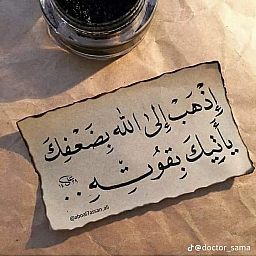 إِذْهَبْ إِلىٰ اللهِ بِضَعْفِكَ
يَأتِيكَ بِقُوتِهِ ..
@aboal7asan.ali
@doctor_sama